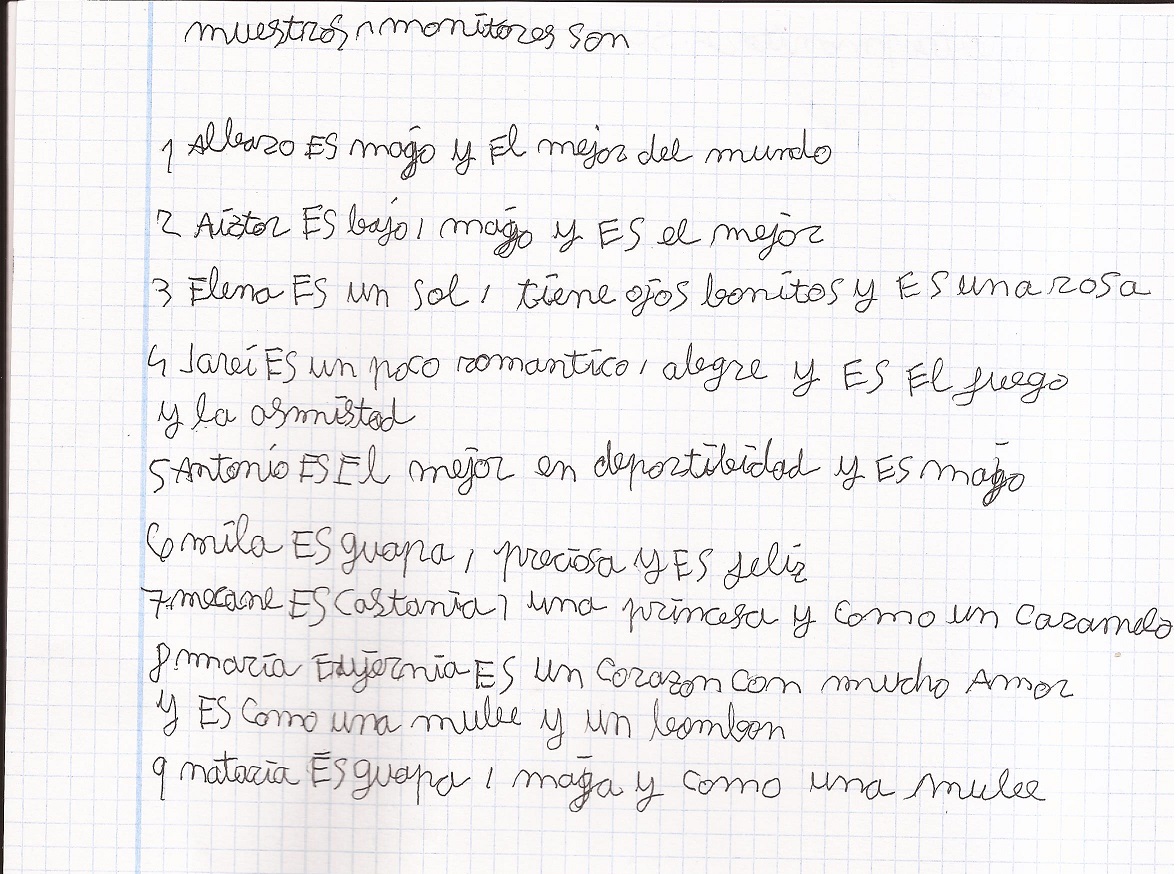 muestros monitores son
1 Albaro ES mago y El mejor del mundo
2 Aiztor ES bajo, mago y ES el mejor
3 Elena ES un sol, tiene ojos bonitos y ES una rosa
4 Jarei ES un poco romantico, alegre y ES El fuego
y la asmistad
5 Antonio ES El mejor en deportibidad y ES mago
6 mila ES guapa, preciosa y ES feliz
7. mecane ES Castania, una princesa y como un caramelo
8. maria ES un Corazon con mucho Amor
y ES Como una mube y un bombon
9 nataria ES guapa, maga y como una mube